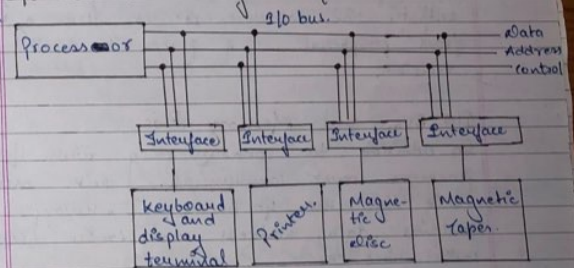 I/O bus.
Data
Processor
Address
Control
Interface
Interface
Interface
Interface
Keyboard
and
display
terminal
Printer.
Magne-
tic
Disc
Magnetic
Tapes.